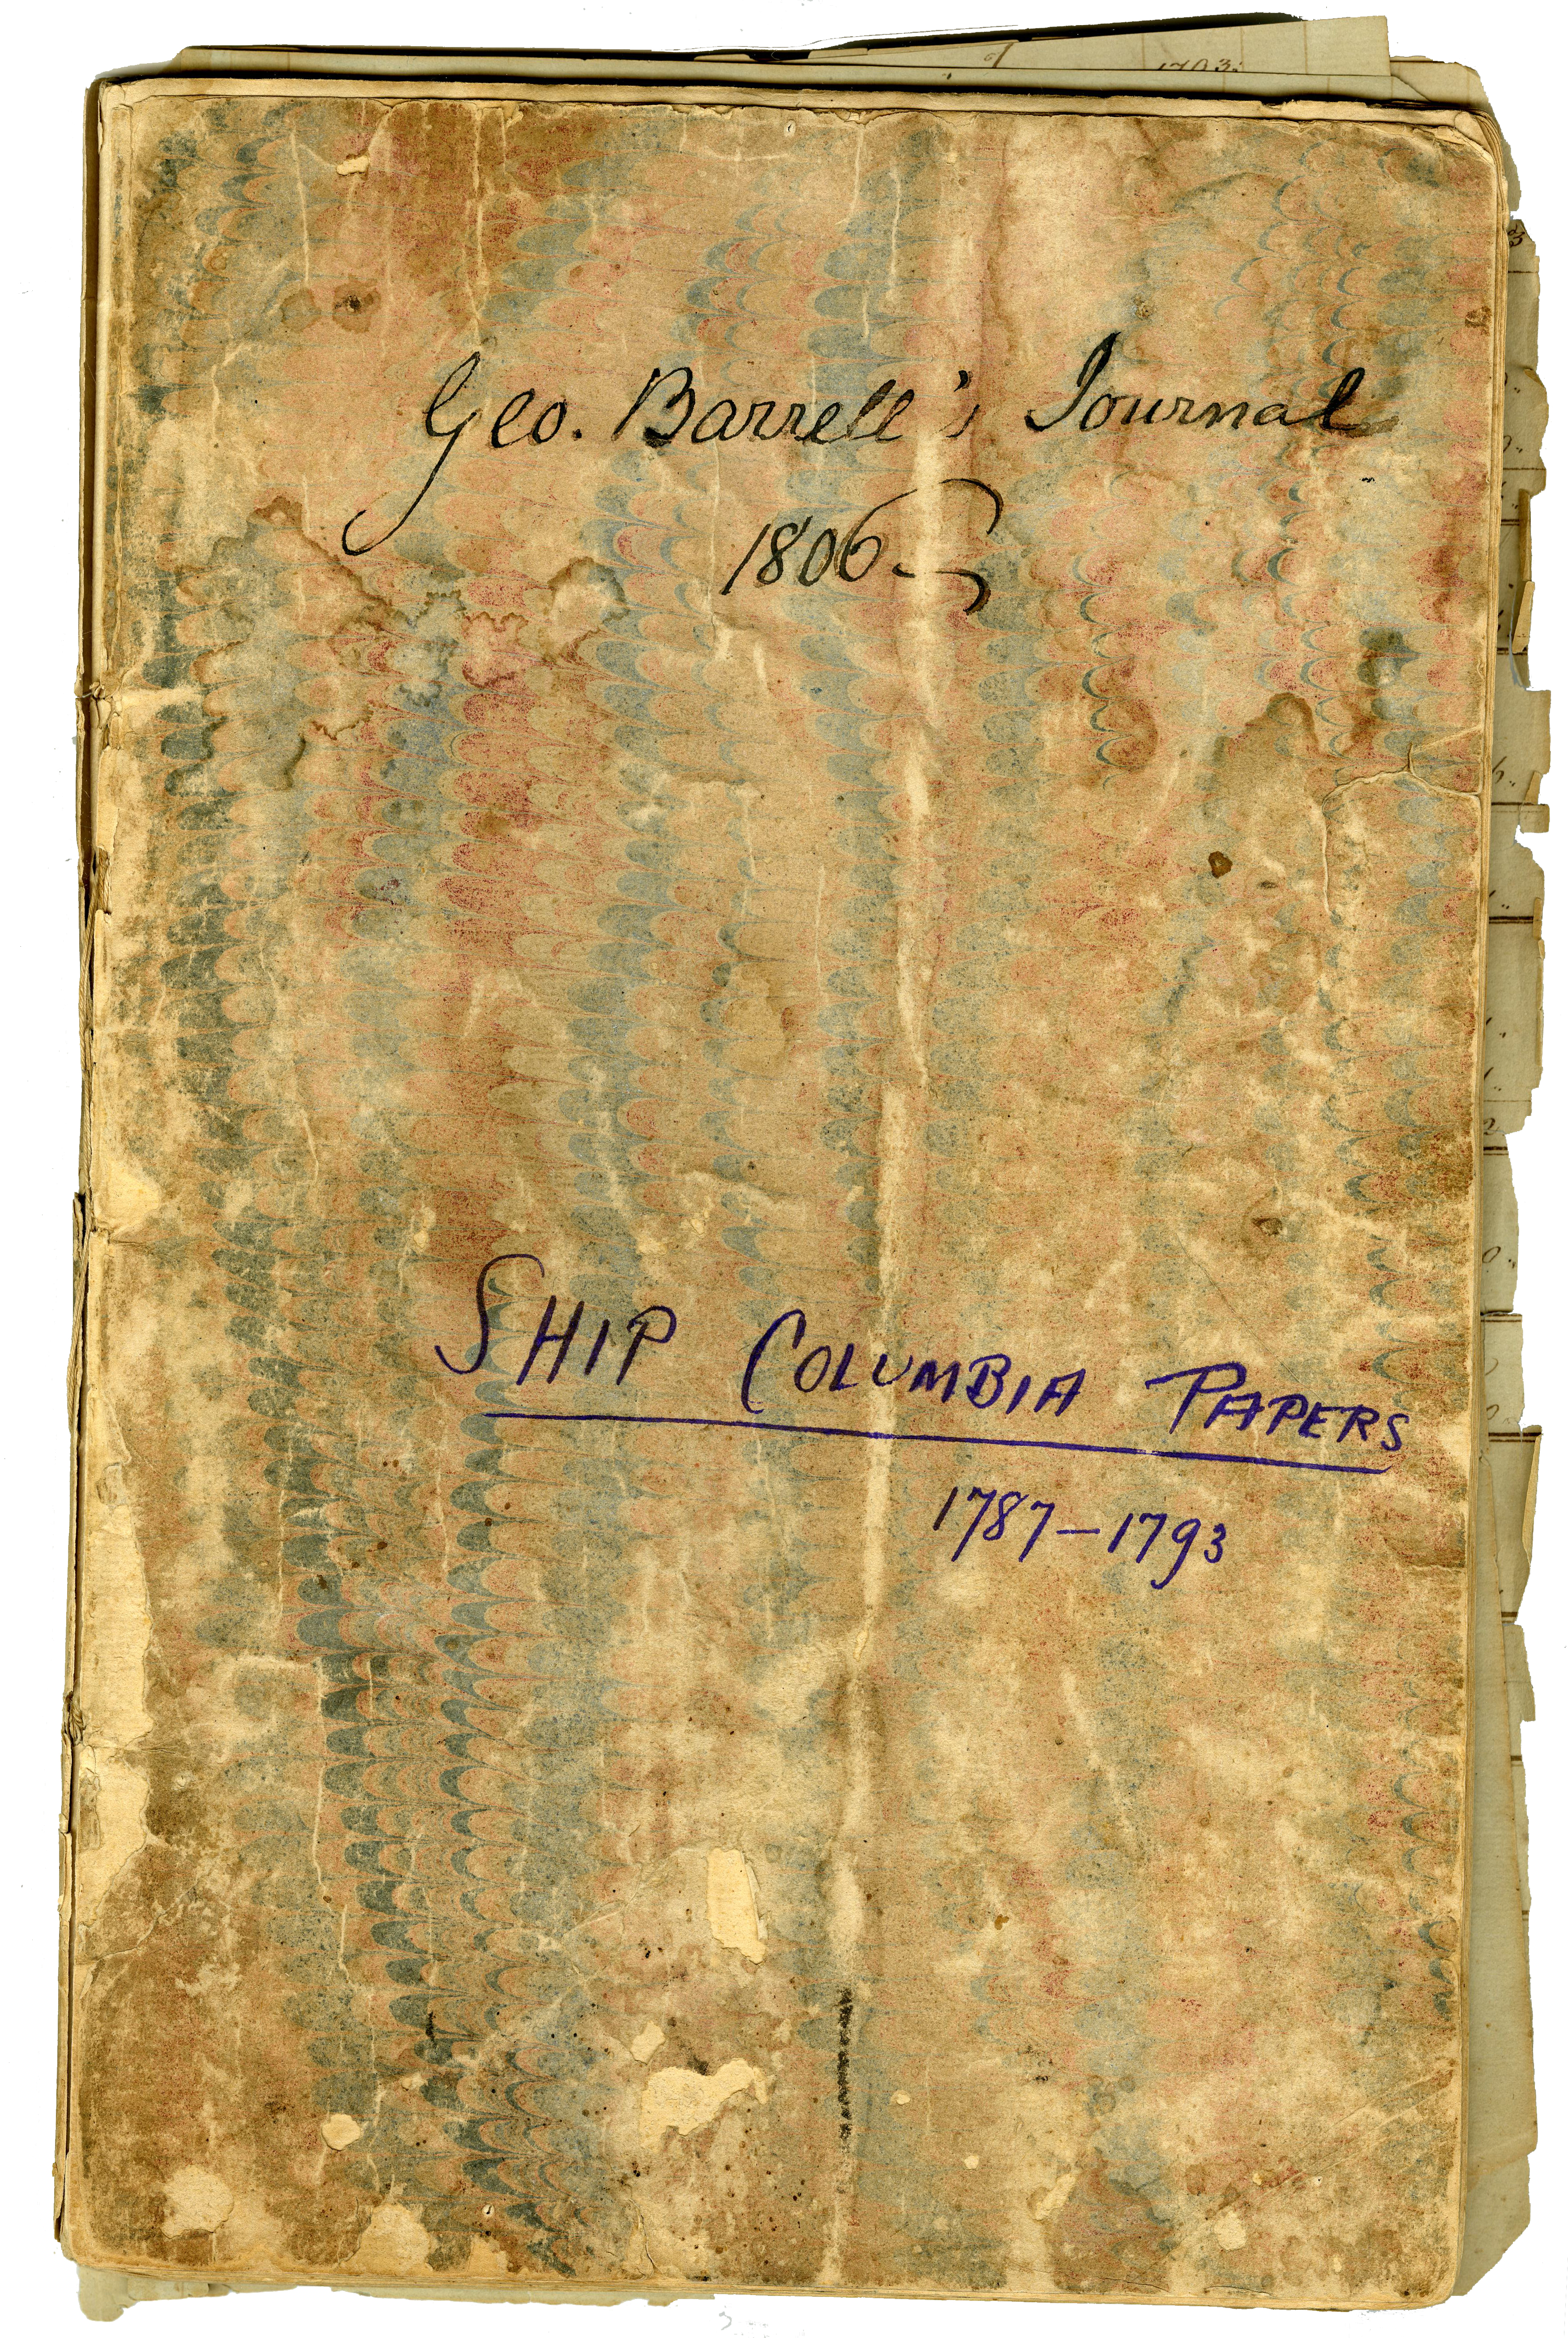 1793.
Geo. Barrell's Journal
1806
SHIP COLUMBIA PAPERS
1787-1793